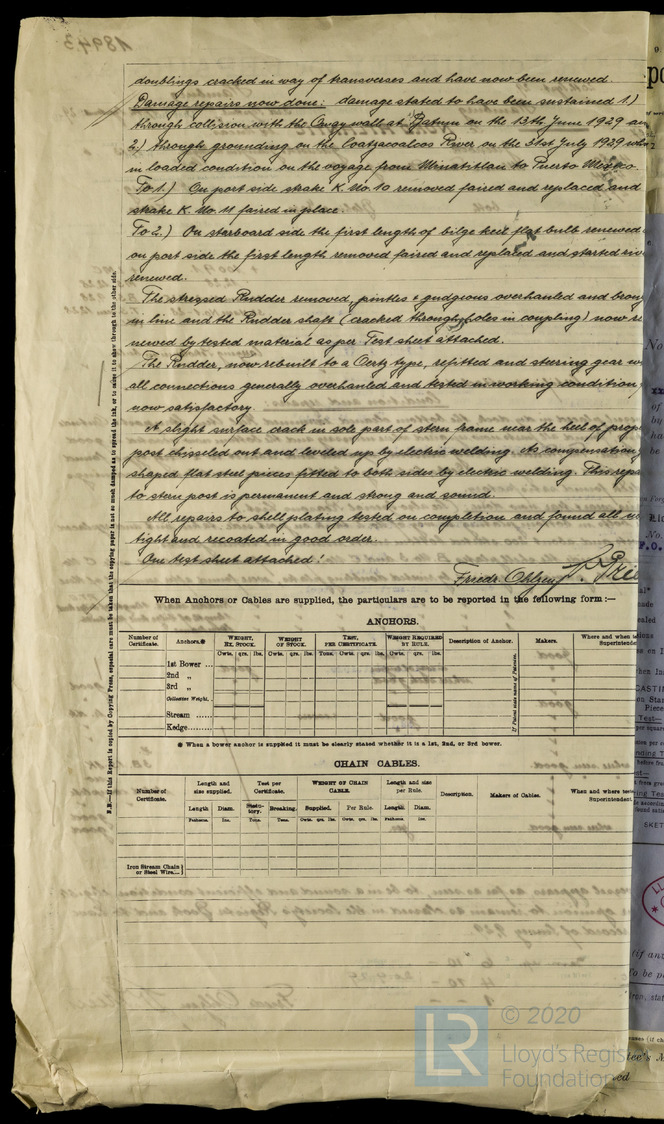 doublings cracked in way of transverses and have now been renewed.
Damage repairs now done: damage stated to have been sustained 1.)
through collision with the Quay wall at on the 13th June 1929 an
2.) through grounding on the Coatzacoalcos River on the 31st July 1929 whi
in loaded condition on the voyage from Minatitlan to Puerto Mexico.
To 1.) On port side strake K. No. 10 removed faired and replaced and
strake K. No. 11 faired in place.
To 2.) On starboard side the first length of bilge keel flat bulb renewed,
on port side the first length removed faired and replaced and started riv
renewed.
The stressed Rudder removed, pintles & gudgeons overhauled and broug
in line and the Rudder shaft (cracked through holes in coupling) now re
newed by tested material as per Test sheet attached.
The Rudder, now rebuilt to a Oertz type, refitted and steering gear w
all connections generally overhauled and tested in working condition,
now satisfactory.
A slight surface crack in sole part of stern frame near the heel of prope
post chisseled out and leveled up by electric welding. As compensation,
shaped flat steel pieces fitted to both sides by electric welding. This repa
to stern post is permanent and strong and sound.
All repairs to shell plating tested on completion and found all w
tight and recoated in good order.
One test sheet attached!
Friedr. Ohlsen
N.B.—If this Report is copied by Copying Press, especial care must be taken that the copying paper is not so much damped as to spread the ink, or to cause it to show through to the other side.
When Anchors or Cables are supplied, the particulars are to be reported in the following form:—
ANCHORS.
Number of Certificate. Anchors.* WEIGHT, EX. STOCK. WEIGHT OF STOCK. TEST, PER CERTIFICATE. WEIGHT REQUIRED BY RULE. Description of Anchor. Makers. Where and when Superintende
Cwts. qrs. lbs. Cwts. qrs. lbs. Tons. Cwts. qrs. lbs. Cwts. qrs. lbs.
1st Bower ...
2nd „
3rd „
Collective Weight.
Stream ......
Kedge.......
If Patent state name of Patentee.
* When a bower anchor is supplied it must be clearly stated whether it is a 1st, 2nd, or 3rd bower.
CHAIN CABLES.
Number of Certificate. Length and size supplied. Test per Certificate. WEIGHT OF CHAIN CABLE. Length and size per Rule. Description. Makers of Cables. When and where Superintendent
Length Diam. Statutory. Breaking. Supplied. Per Rule. Length. Diam.
Fathoms. Ins. Tons. Tons. Cwts. qrs. lbs. Cwts. qrs. lbs. Fathoms. Ins.
Iron Stream Chain or Steel Wire...
LR
© 2020
Lloyd's Register
Foundation